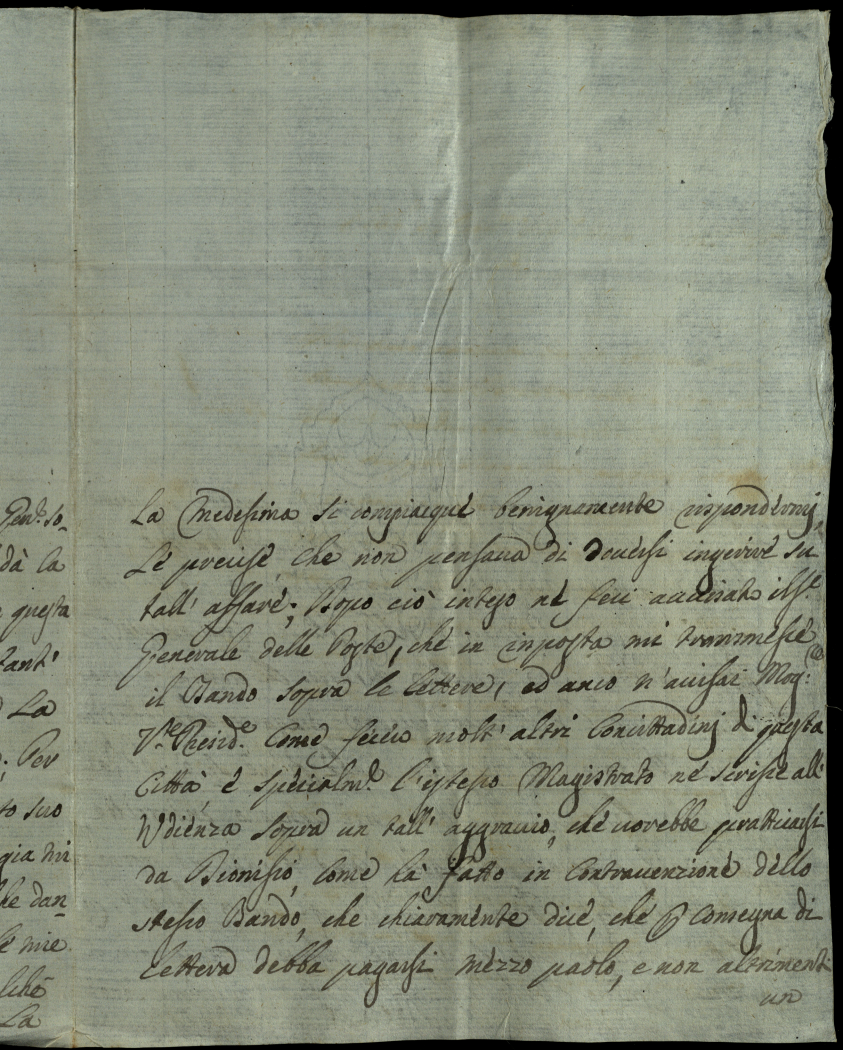 Gen.e so-
dà la
questa
tant'
La
Per
to suo
gia mi
he dan-
le mie
La
La Medesima si compiacque benignamente rispondermj,
Le precise, che non pensava di doversi ingerire su
tall' affare; Dopo ciò inteso né feci avvisato il Sr.
Generale delle Poste, ché in risposta mi trammesse
il Bando sopra le lettere, ed anco n'avisai Mog:
V. Presid.e Come fecero molt' altri Concittadinj di questa
Città é spécialm.e l'istesso Magistrato né scrisse all'
Udiénza sopra un tall' aggravio, ché vorebbe pratticarsi
da Dionisio, Come hà fatto in Contravenzioné déllo
stesso Bando, che chiaraménte dicé, ché p Consegna di
Lettera debba pagarsi mézzo paolo, e non altrimenti
un